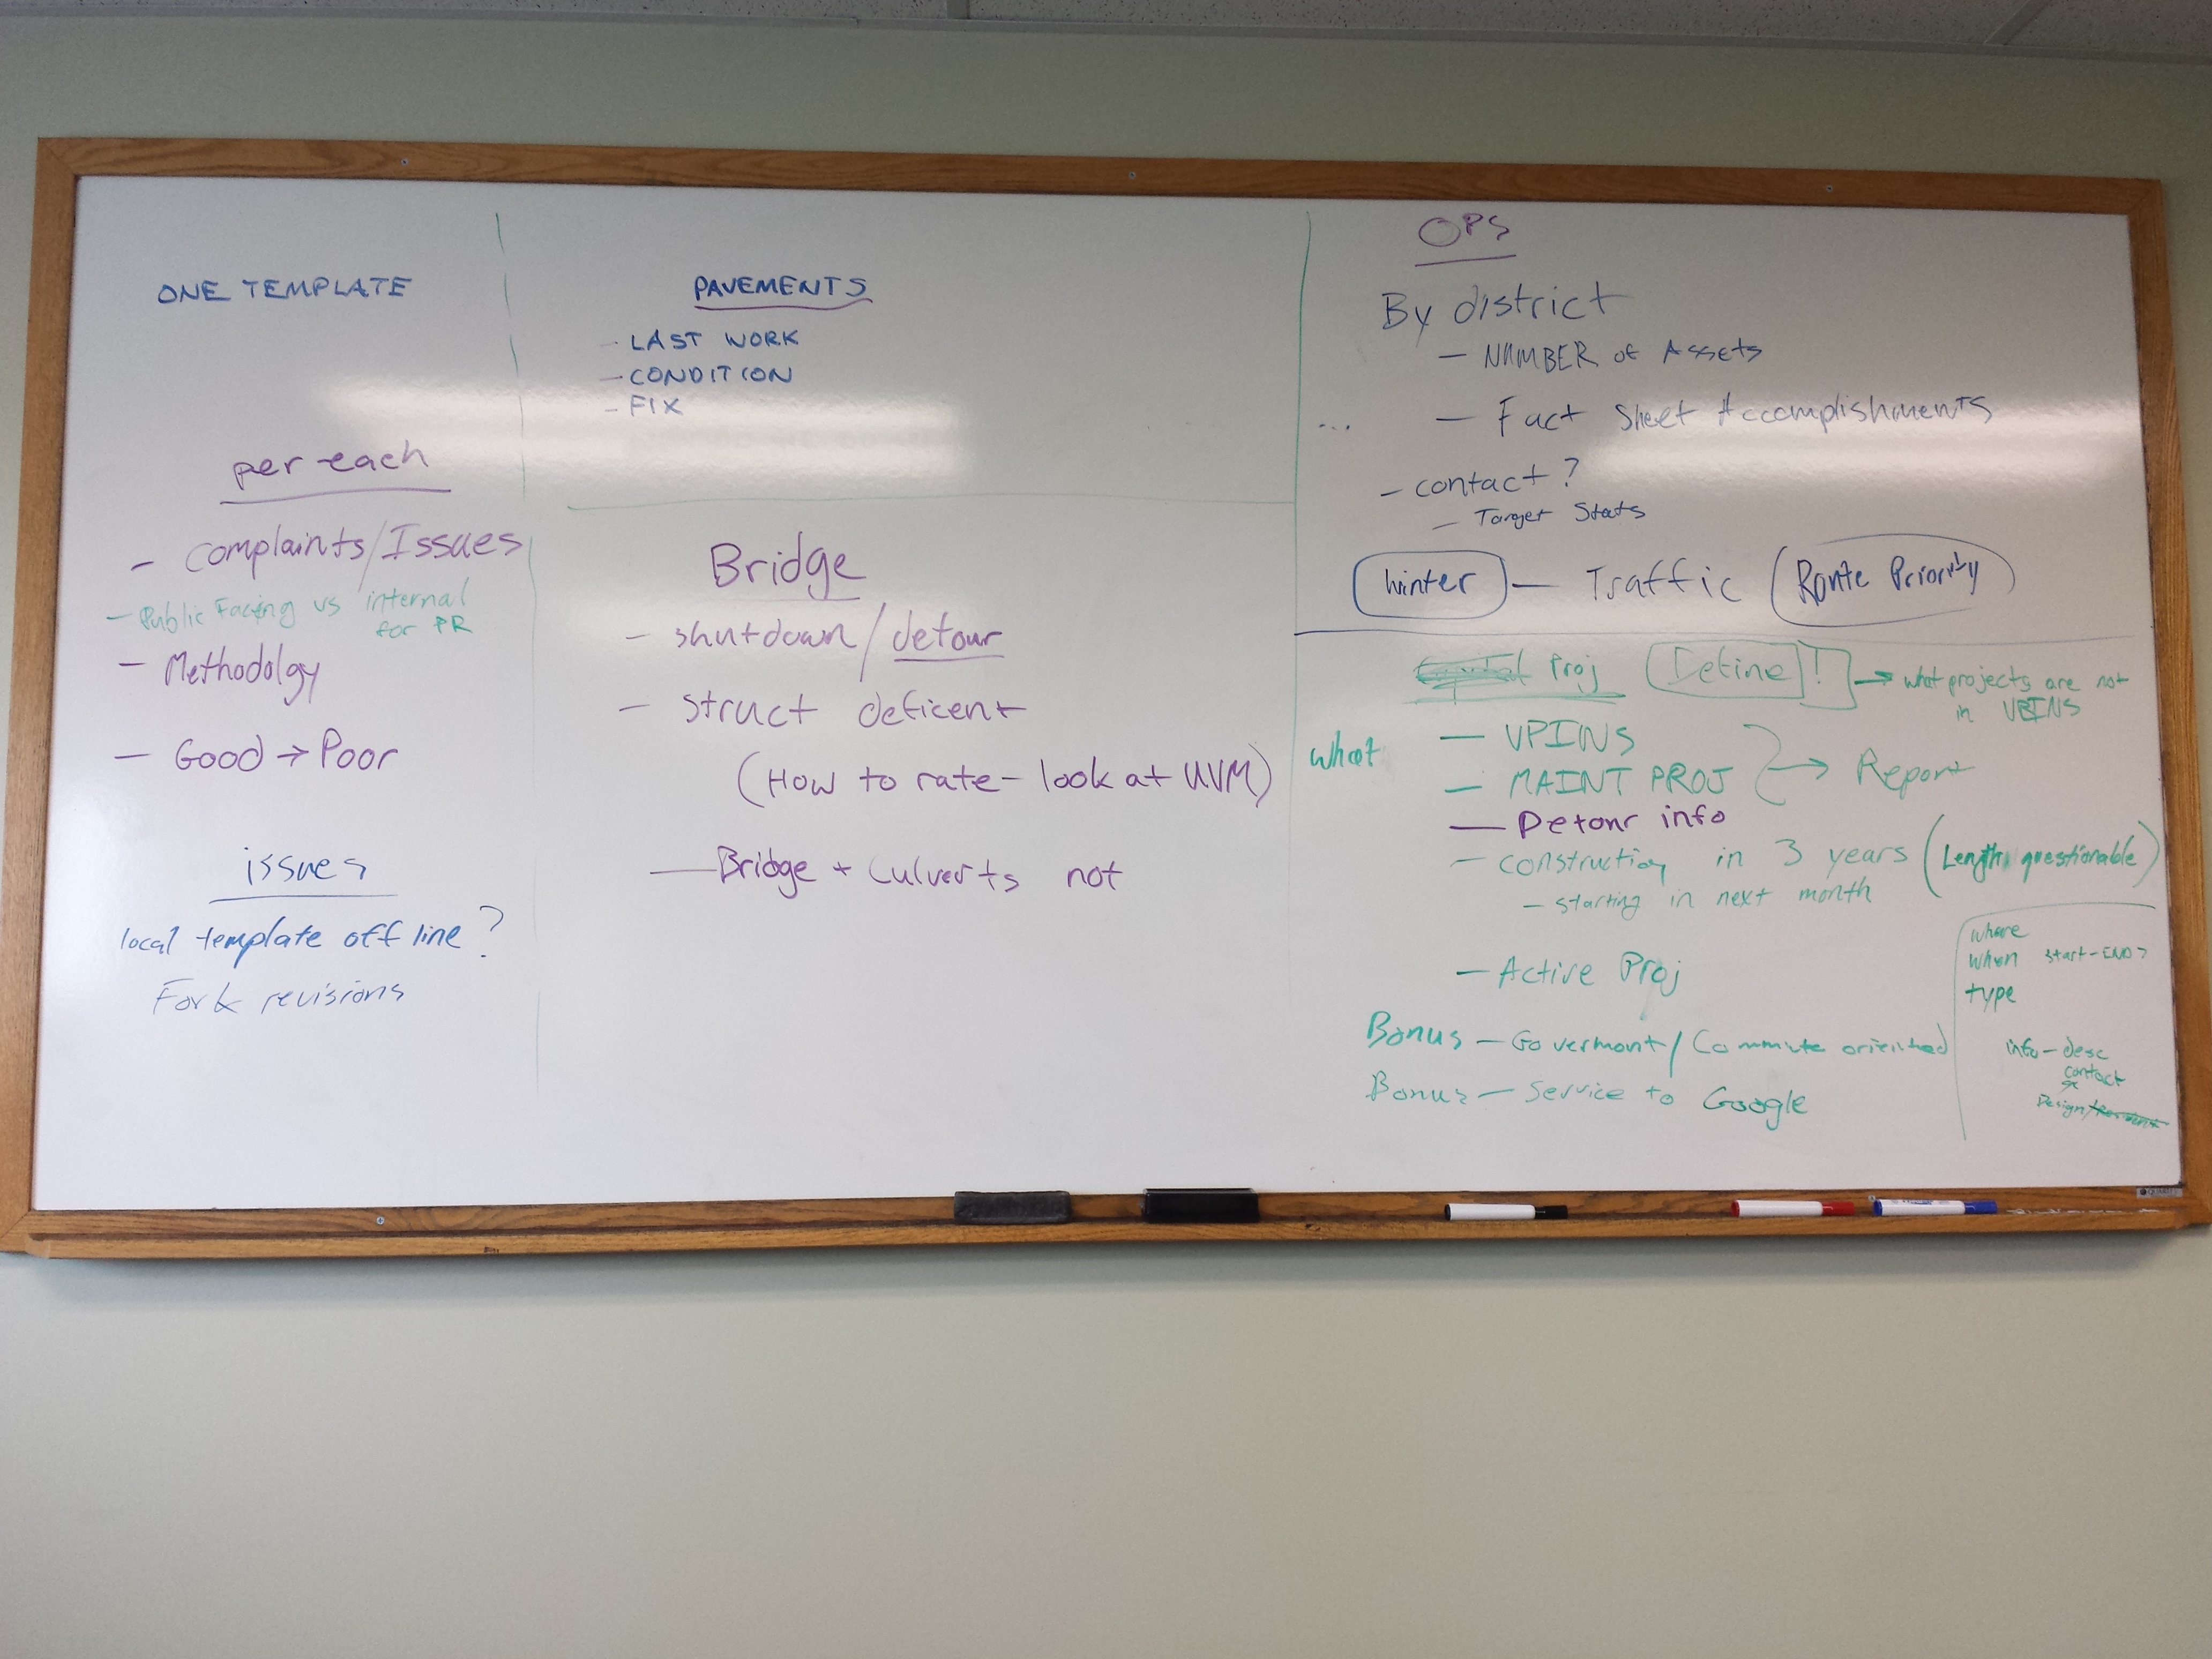 ONE TEMPLATE
per each
- Complaints/Issues
- Public Facing vs internal
for PR
- Methodolgy
- Good → Poor
issues
local template off line?
Fork revisions
PAVEMENTS
- LAST WORK
- CONDITION
- FIX
Bridge
- shutdown/detour
- struct deficent
(How to rate - look at UVM)
- Bridge + Culverts not
OPS
By district
- NUMBER of Assets
...
- Fact Sheet Accomplishments
- contact?
- Target Stats
Winter - Traffic (Route Priority)
Proj Define! → what projects are not
in VPINS
what
- VPINS
- MAINT PROJ → Report
- Detour info
- construction in 3 years (Length questionable)
- starting in next month
- Active Proj
Bonus - Go vermont/Commute oriented
Bonus - Service to Google
where
when start-END?
type
info - desc
contact
Design/